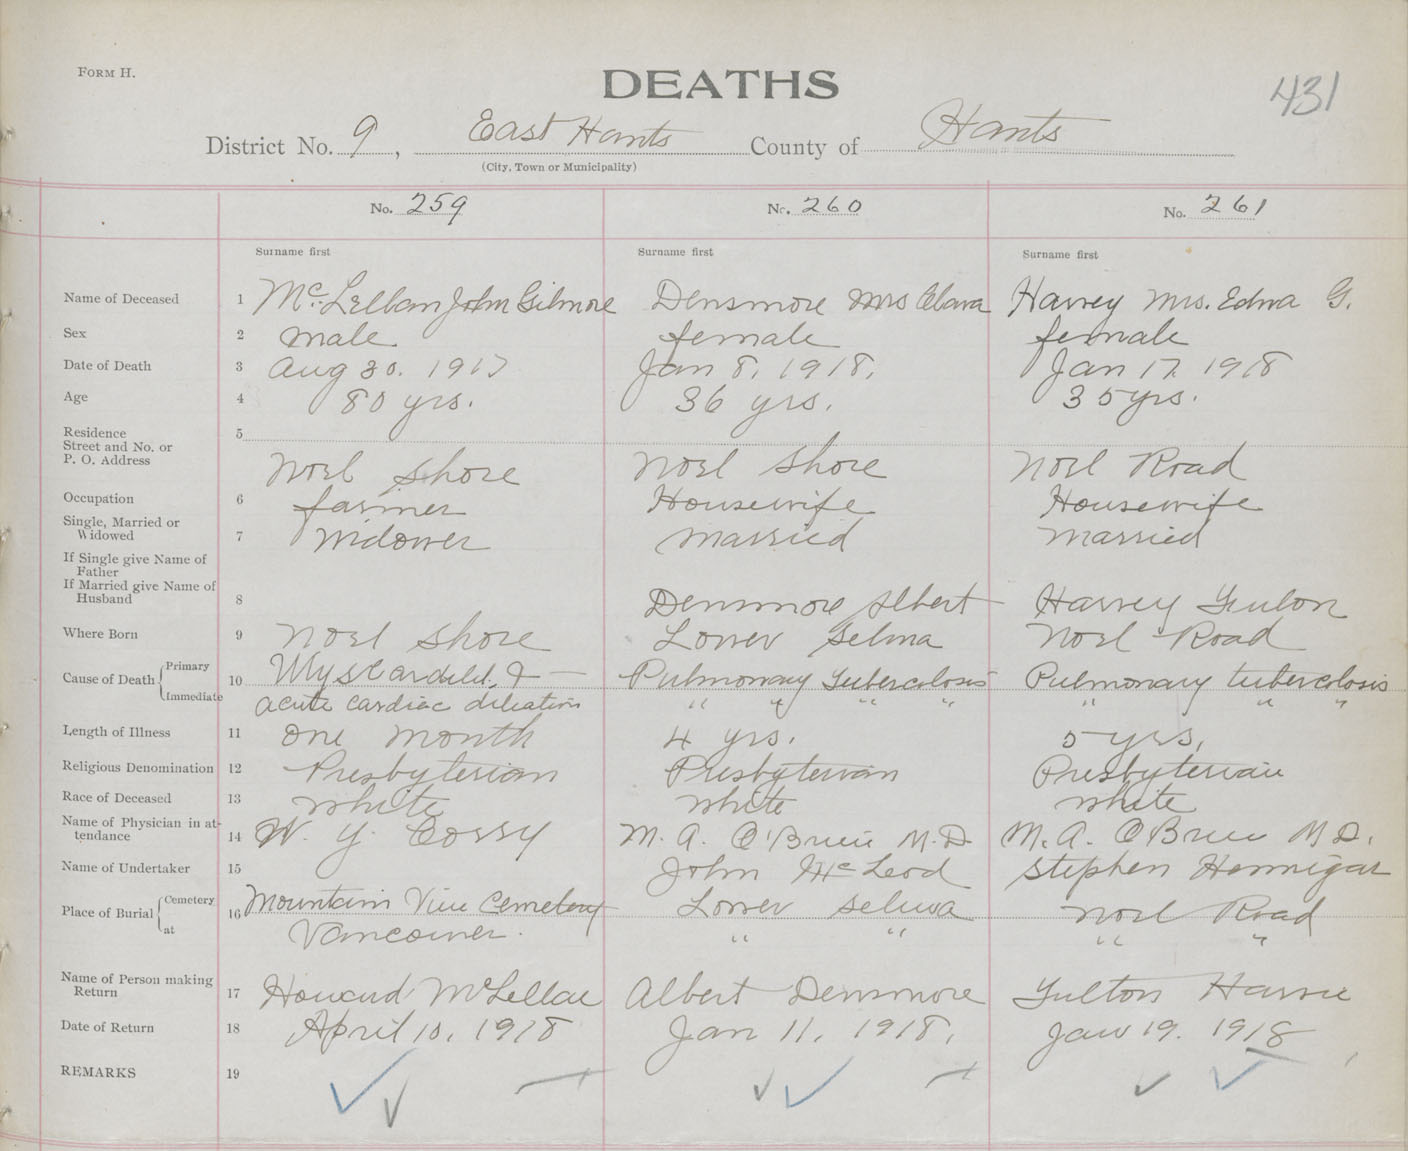 FORM H.
DEATHS
431
District No. 9, East Hants County of Hants
(City, Town or Municipality)
No. 259 No. 260 No. 261
Surname first Surname first Surname first
Name of Deceased 1 McLellan John Gilmore Densmore Mrs Clara Harvey Mrs. Edna G.
Sex 2 male female female
Date of Death 3 Aug 30. 1917 Jan 8, 1918. Jan 17 1918
Age 4 80 yrs. 36 yrs. 35 yrs.
Residence 5
Street and No. or
P. O. Address Noel Shore Noel Shore Noel Road
Occupation 6 farmer Housewife Housewife
Single, Married or
Widowed 7 Widower Married Married
If Single give Name of
Father
If Married give Name of
Husband 8 Densmore Albert Harvey Fulton
Where Born 9 Noel Shore Lower Selma Noel Road
Cause of Death Primary 10 & Pulmonary Tuberculosis Pulmonary tuberculosis
Immediate acute cardiac dilation " " " " " " "
Length of Illness 11 One month 4 yrs. 5 yrs.
Religious Denomination 12 Presbyterian Presbyterian Presbyterian
Race of Deceased 13 White White White
Name of Physician in at-
tendance 14 W. Y. M. A. O'Brien M.D. M. A. O'Brien M D.
Name of Undertaker 15 John McLeod Stephen Hennigar
Place of Burial Cemetery 16 Mountain View Cemetery Lower Selma Noel Road
at Vancouver. " " " "
Name of Person making
Return 17 Howard McLellan Albert Densmore Fulton Harvie
Date of Return 18 April 10, 1918 Jan 11, 1918, Jan 19. 1918
REMARKS 19